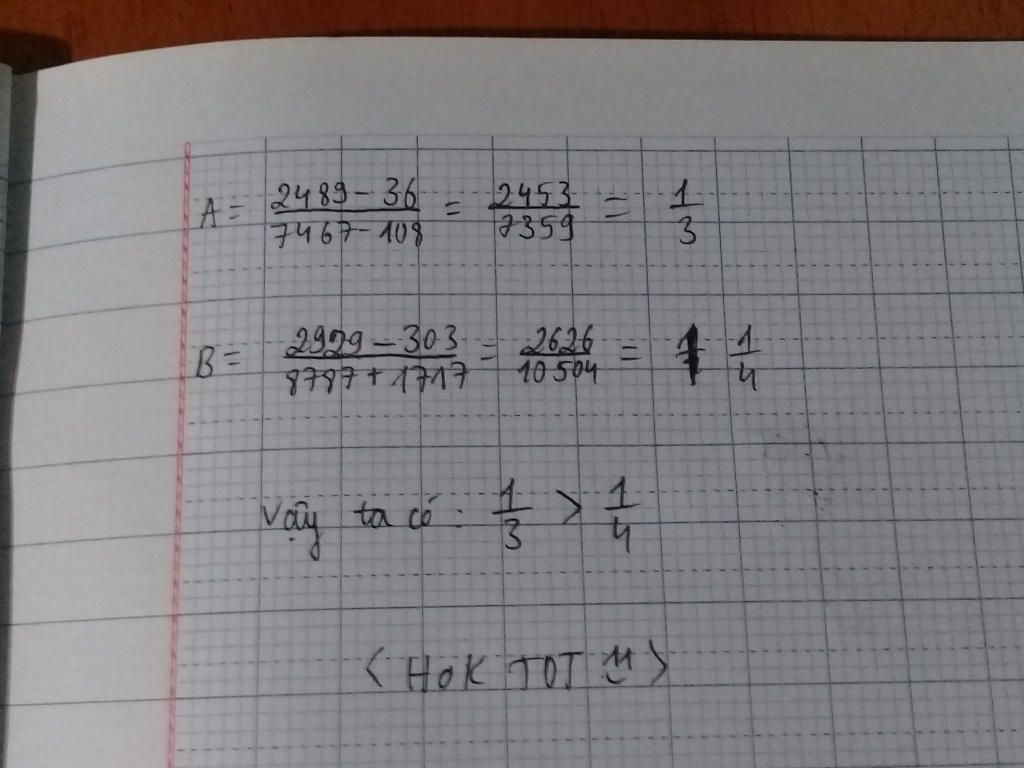 A = \frac{2489 - 36}{7467 - 108} = \frac{2453}{7359} = \frac{1}{3}
B = \frac{2929 - 303}{8787 + 1717} = \frac{2626}{10504} = \frac{1}{4}
Vậy ta có : \frac{1}{3} > \frac{1}{4}
< HOK TOT >